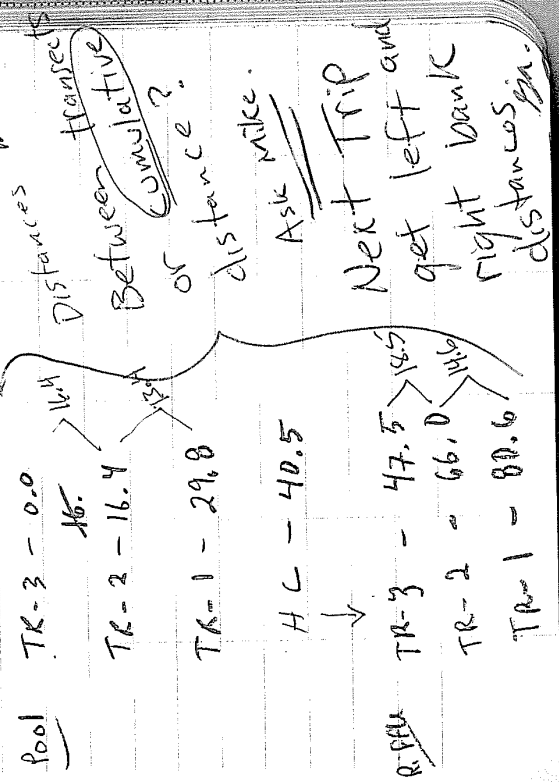 Pool TR-3 - 0.0
16.
>16.4
TR-2 - 16.4
>13.4
TR-1 - 29.8
HC - 40.5
Riffle TR-3 - 47.5
>18.5
TR-2 - 66.0
>14.6
TR-1 - 80.6
Distances
Between transects
cumulative
or
distance?
Ask Mike.
Next Trip
get left and
right bank
distances